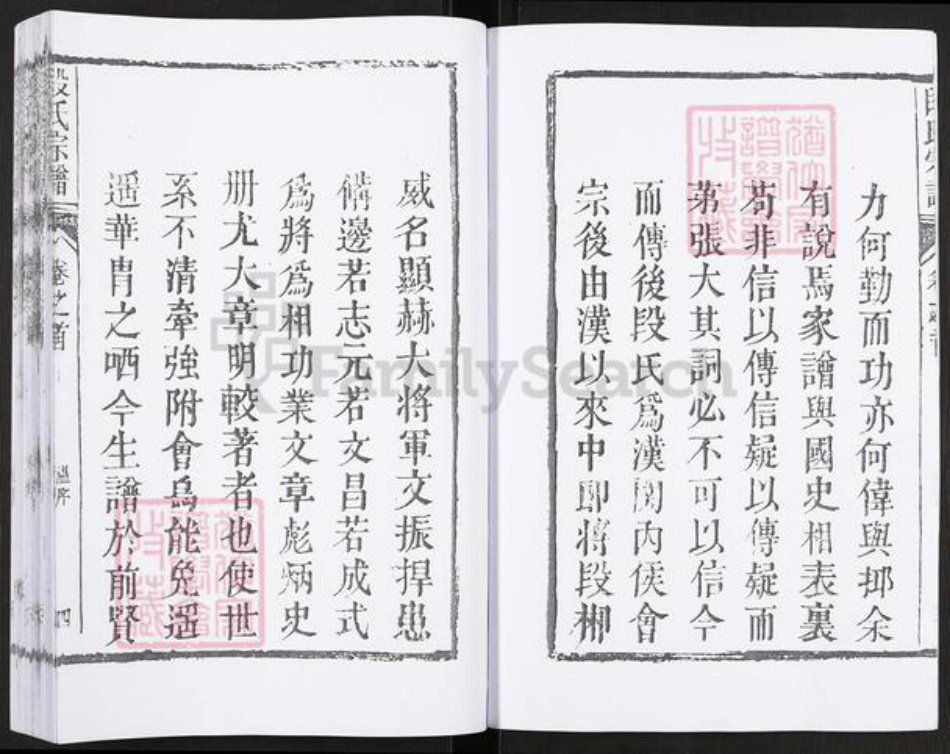 力何勤而功亦何偉與抑余
有說焉家譜與國史相表裏
苟非信以傳信疑以傳疑而
第張大其詞必不可以信今
而傳後段氏爲漢關內侯會
宗後由漢以來中郎將段
威名顯赫大將軍文振捍患
備邊若志元若文昌若成式
爲將爲相功業文章彪炳史
册尤大章明較著者也使世
系不清牽強附會烏能免遥
遥華胄之哂今生譜於前賢
段氏宗譜
卷之首
四
FamilySearch